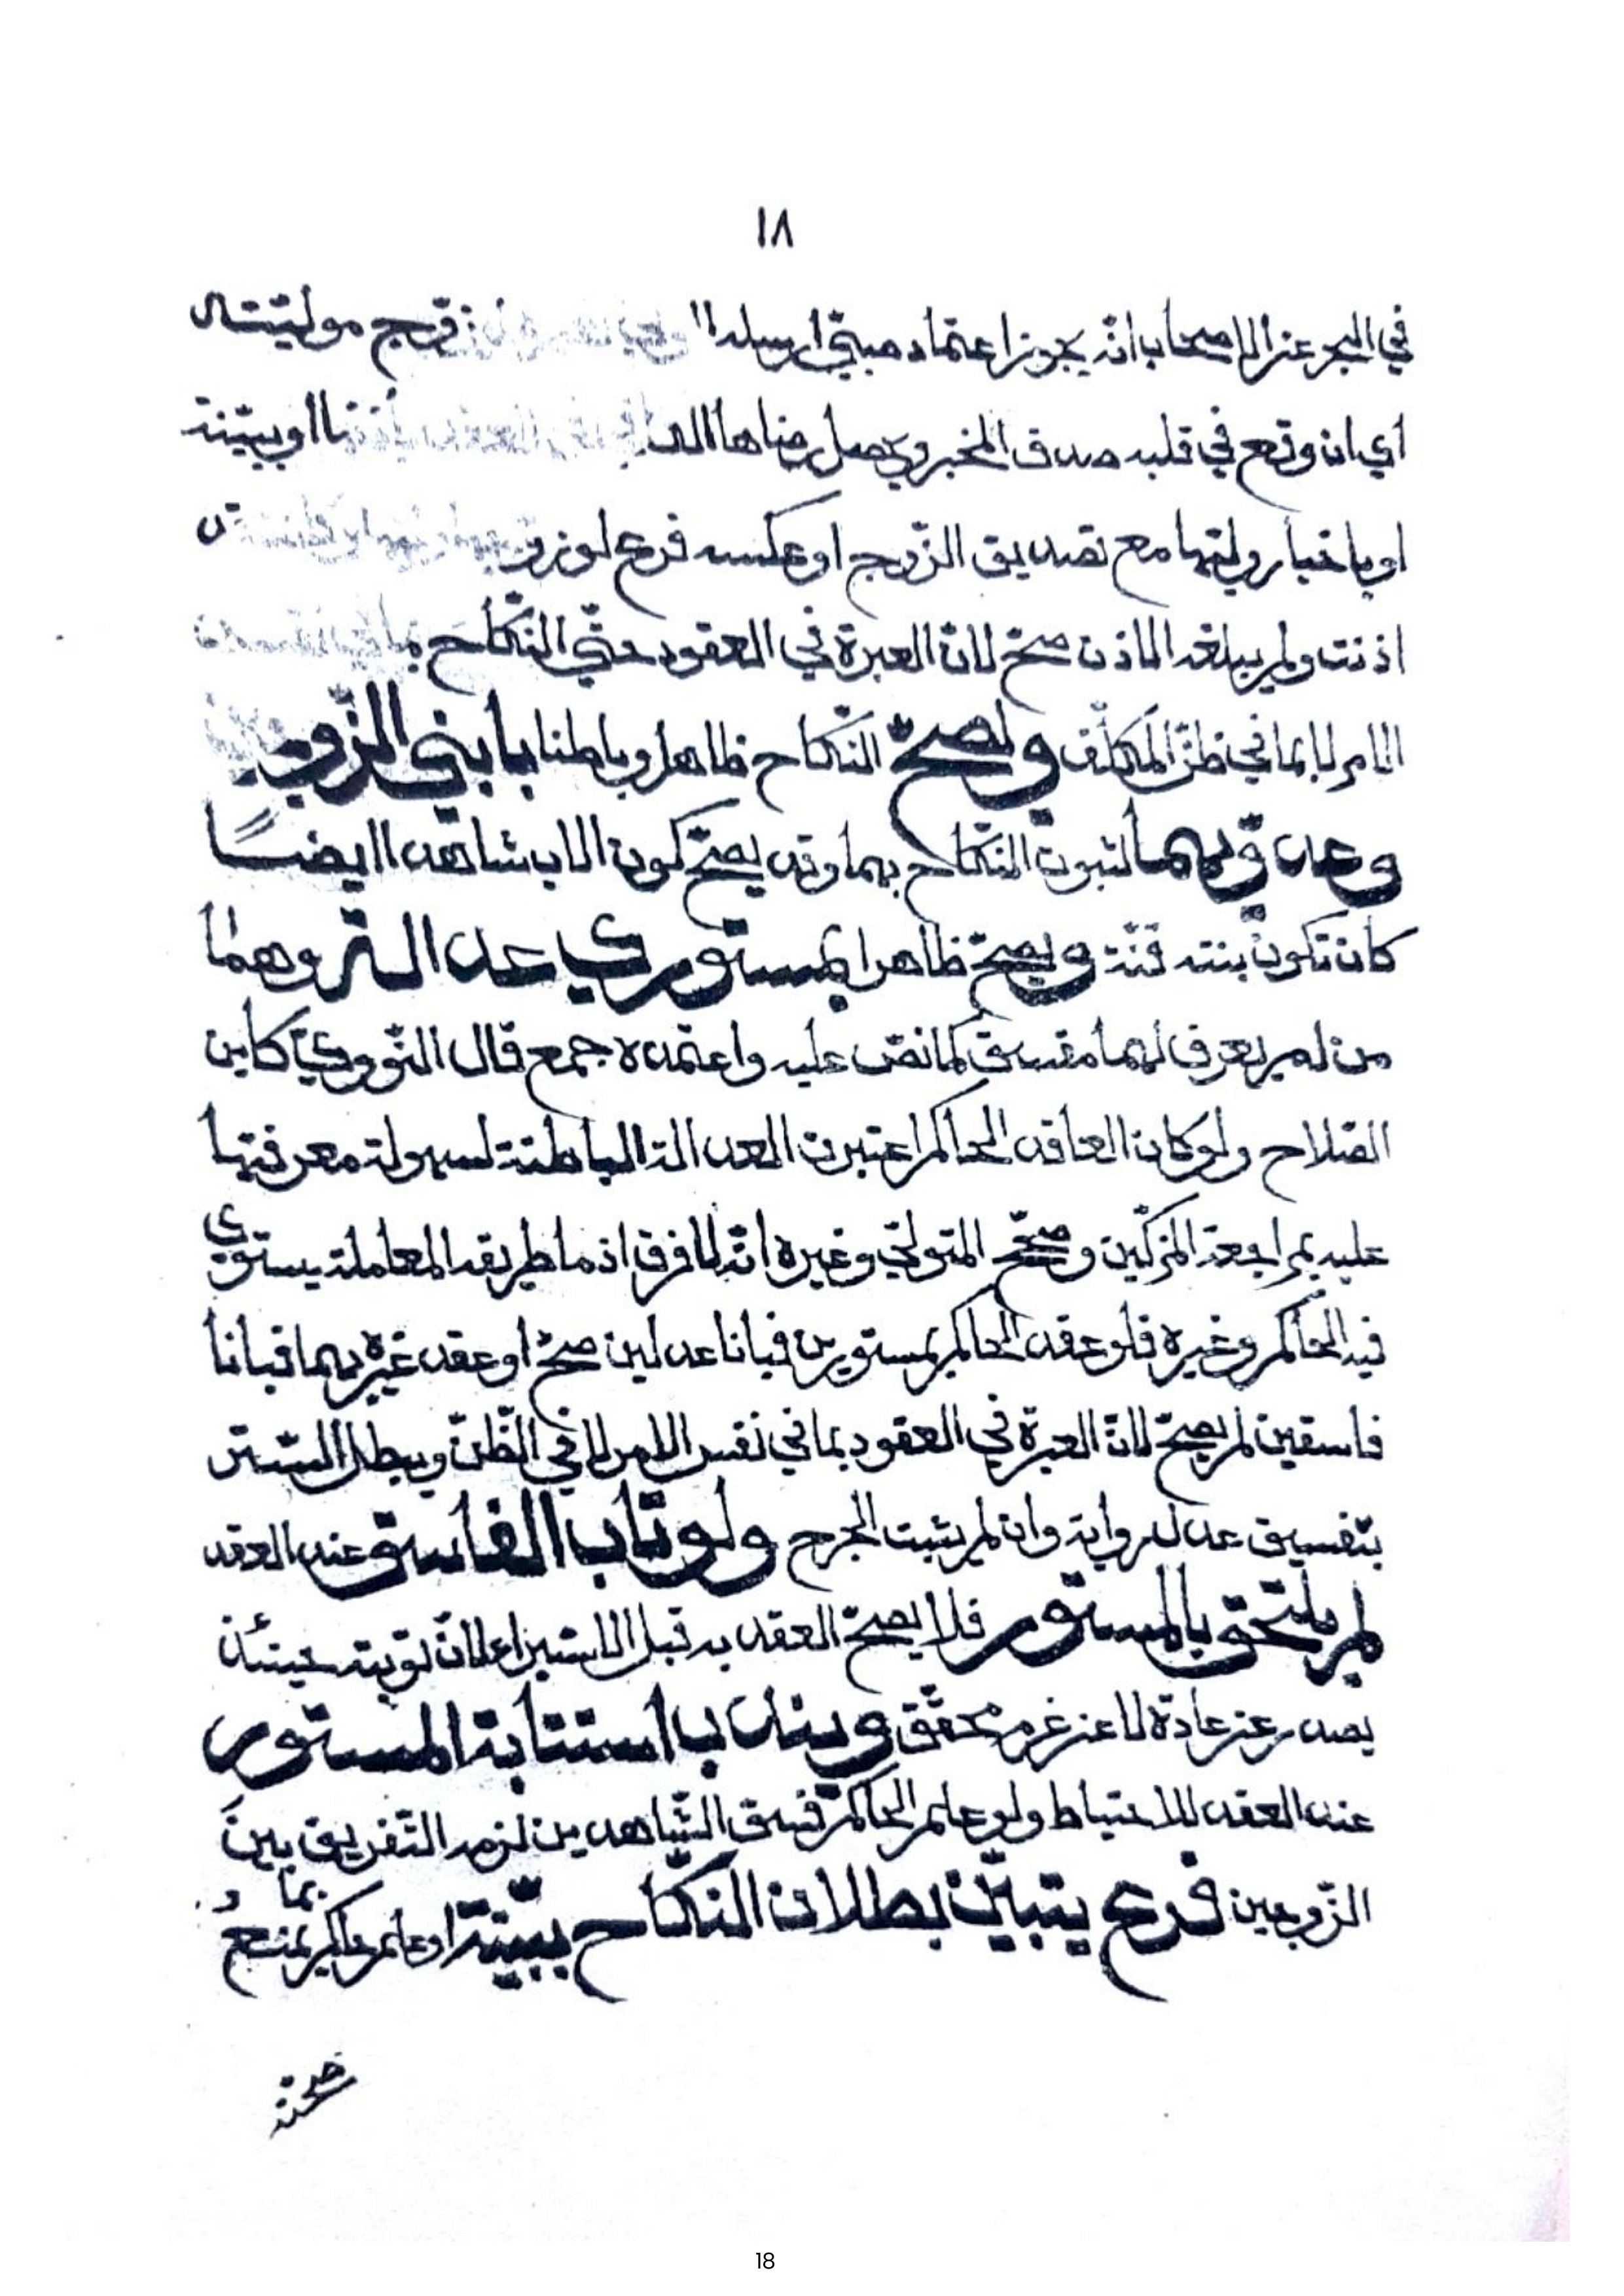 ١٨
في البحر عن الاصحاب انه يجوز اعتماد صبي ارسله موليته
اي ان وقع في قلبه صدق المخبر ويحصل رضاها اوببينة
اوباخبار وليها مع تصديق الزّوج اوعكسه فرع لو
اذنت ولم يبلغه الاذن صحّ لانّ العبرة في العقود حتّي النّكاح
الامر لابما في ظنّ المكلّف ويصحّ النّكاح ظاهرا وباطنا بابني
وعدوّيهما لثبوت النّكاح بهما وقد يصحّ كون الاب شاهدا ايضًا
كان تكون بنته قنّة ويصحّ ظاهرا بمستوري عدالة وهما
من لم يعرف لهما مفسق كما نصّ عليه واعتمده جمع قال النّوويّ كابن
الصّلاح ولوكان العاقد الحاكم اعتبرت العدالة الباطنة لسهولة معرفتها
عليه بمراجعة المزكّين وصحّح المتولّي وغيره انّه لافرق اذ ماطريقه المعاملة يستوي
فيه الحاكم وغيره فلوعقد الحاكم بمستورين فبانا عدلين صحّ اوعقد غيره بهما فبانا
فاسقين لم يصحّ لانّ العبرة في العقود بما في نفس الامر لا في الظّنّ ويبطل السّتر
بتفسيق عدل رواية وان لم يثبت الجرح ولوتاب الفاسق عند العقد
لم يلتحق بالمستور فلايصحّ العقد به قبل الاستبراء لانّ توبته حينئذ
يصدر عن عادة لاعن عزم محقّق ويندب استتابة المستور
عند العقد للاحتياط ولوعلم الحاكم فسق الشّاهدين لزمه التّفريق بين
الزّوجين فرع يتبيّن بطلان النّكاح ببيّنة اوعلم حاكم بما يمنع